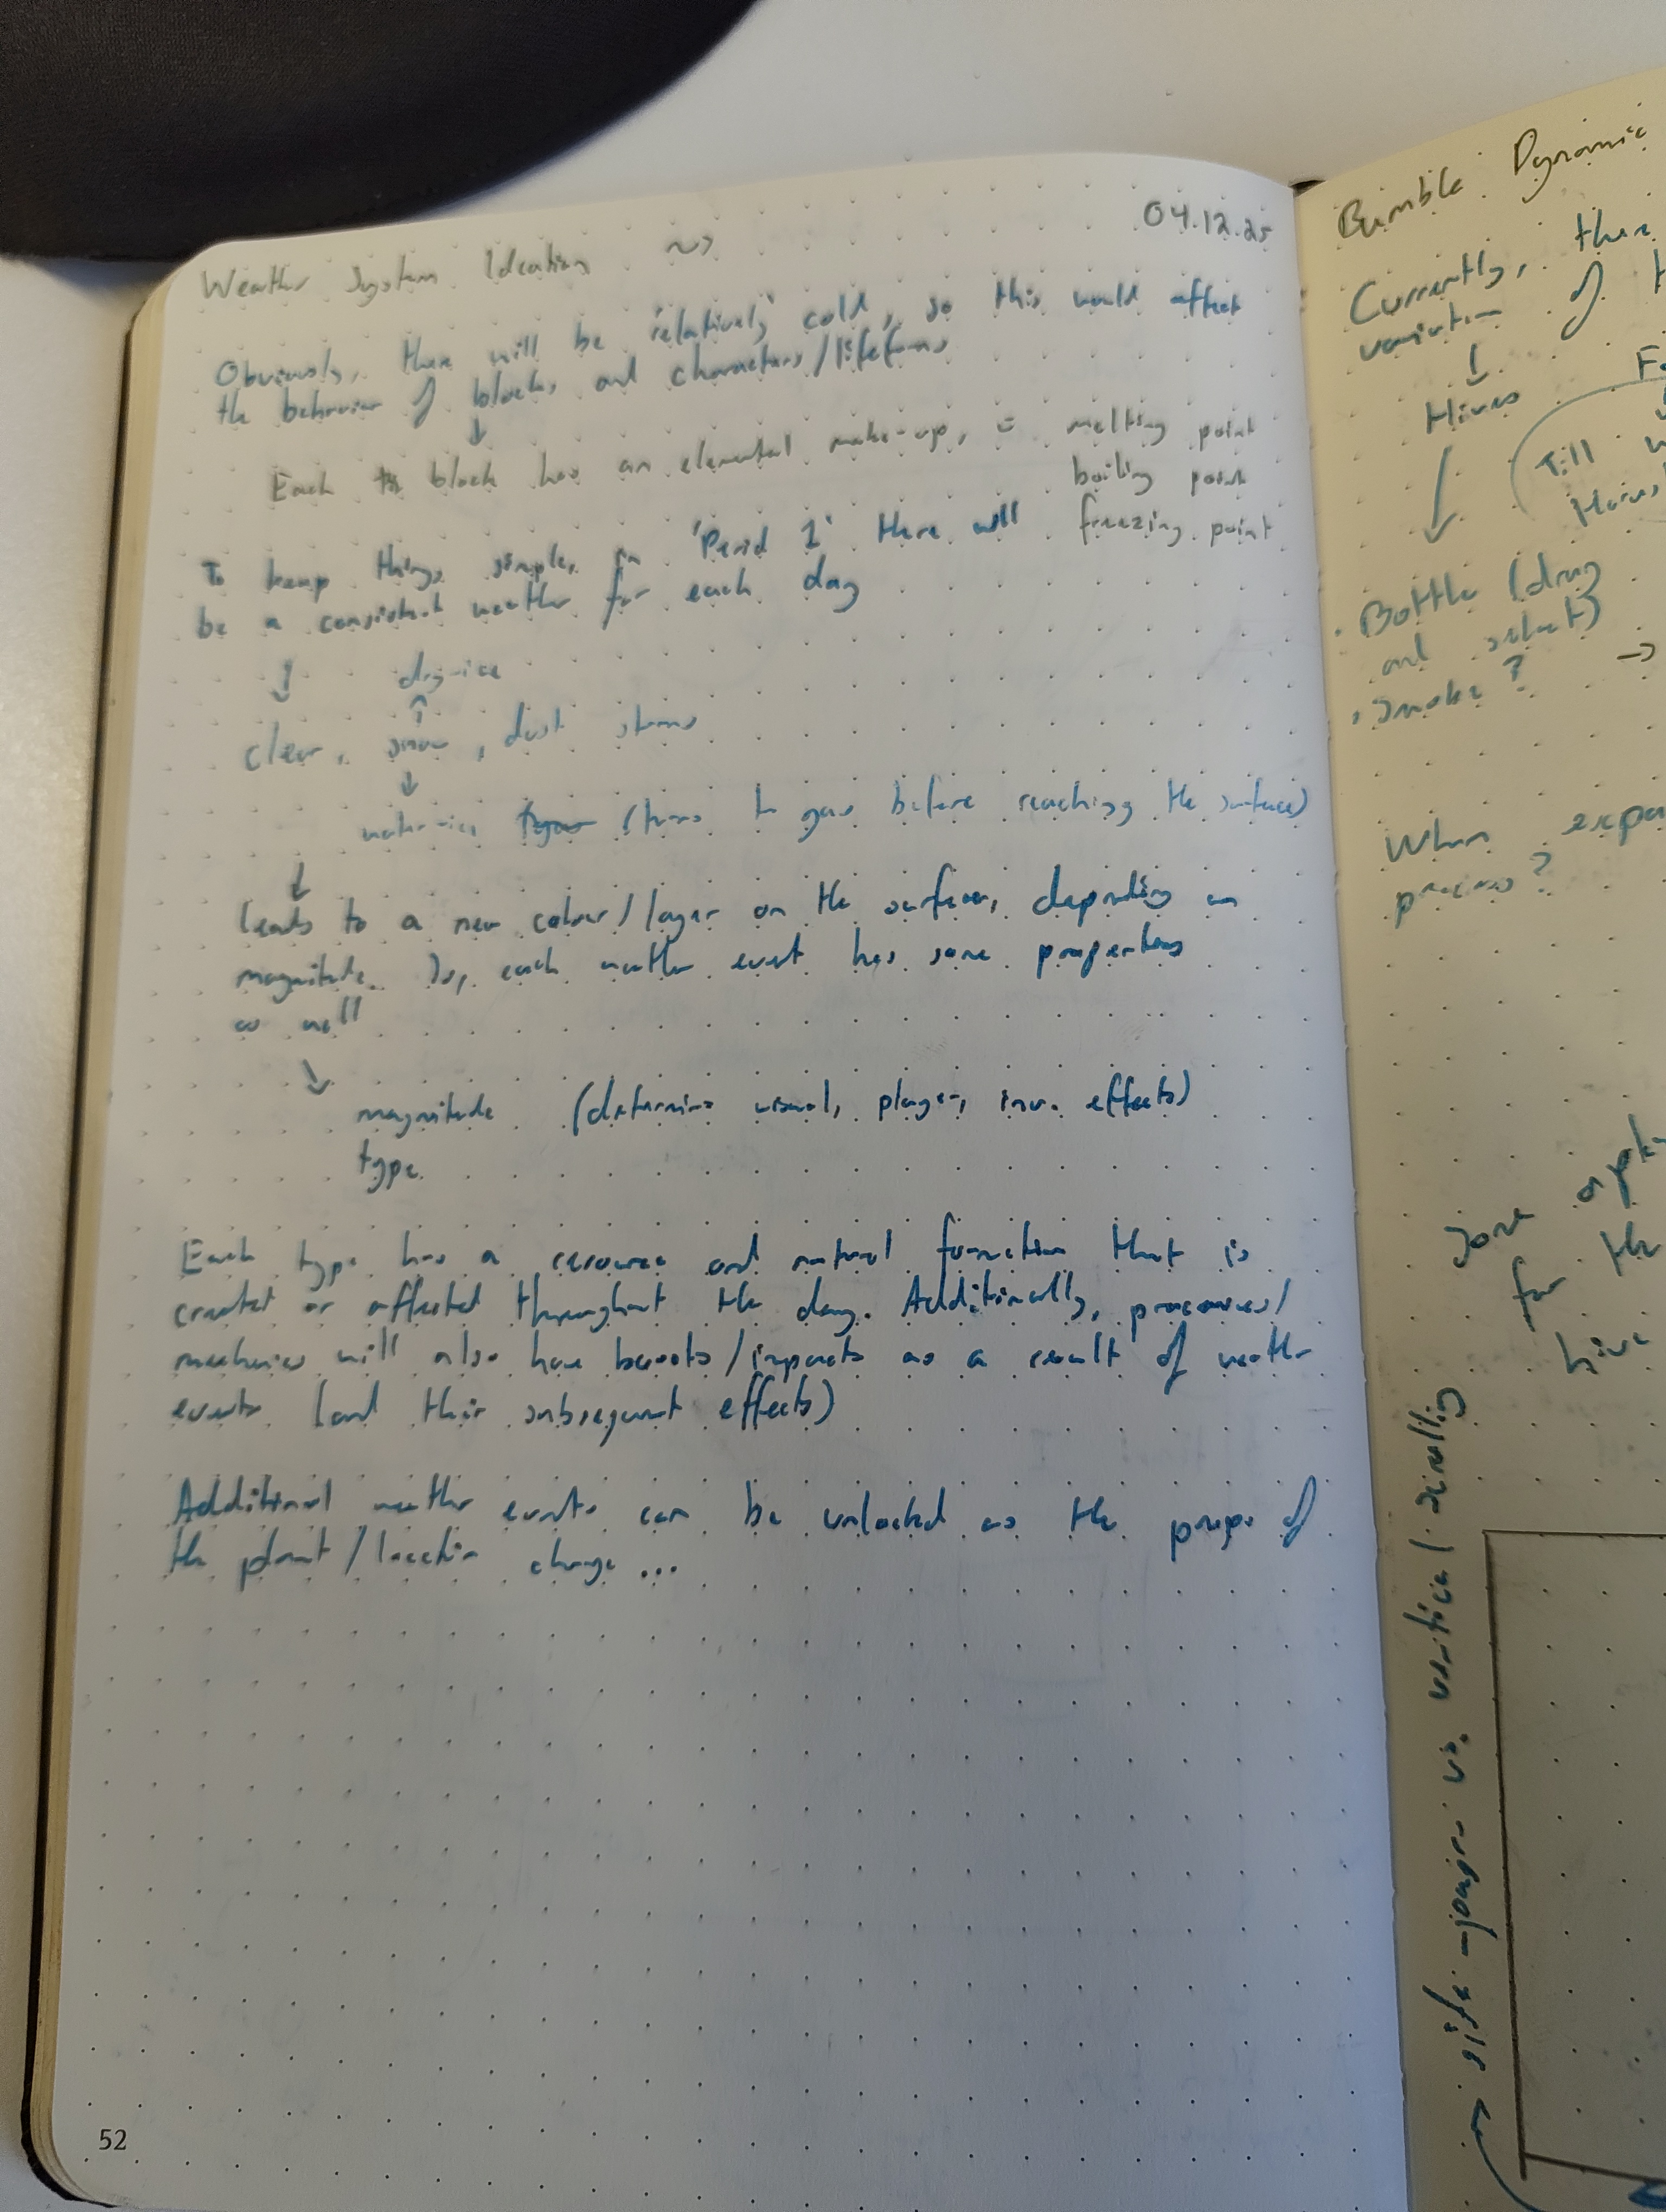 Weather System Ideation ~> 04.12.25
Obviously, there will be 'relatively' cold, so this would affect
the behaviour of blocks and characters/lifeforms
↓
Each block has an elemental make-up, = melting point
boiling point
freezing point
To keep things simple, in 'Period 1' there will
be a consistent weather for each day
↓ dry-ice
↑
clear, snow, dust storms
↓
water-ice (turns to gas before reaching the surface)
↓
leads to a new colour/layer on the surface, depending on
magnitude. So, each weather event has some properties
as well
↓
magnitude (determine visual, player, inv. effects)
type
Each type has a resource and natural formation that is
created or affected throughout the day. Additionally, processes/
mechanics will also have boosts/impacts as a result of weather
events (and their subsequent effects)
Additional weather events can be unlocked as the props of
the planet/location change...
52
Bumble Dynamic
Currently, there
variation of
↓
Hives
↓
Till
Bottle (drag
and select)
→
Smoke?
When expa
process?
for the
hive
side-joiner vs. vertical